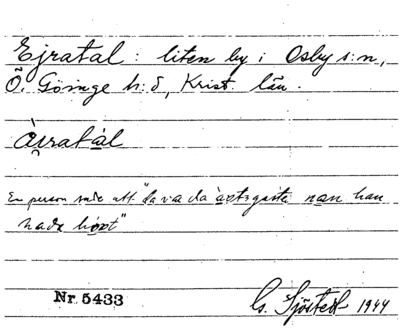 Ejratal: liten by i Osby s:n,
Ö. Göinge h:d, Krist. län.
En person sade att "da va da nan han
hade hört"
Nr. 5433
G. Sjöstedt 1944